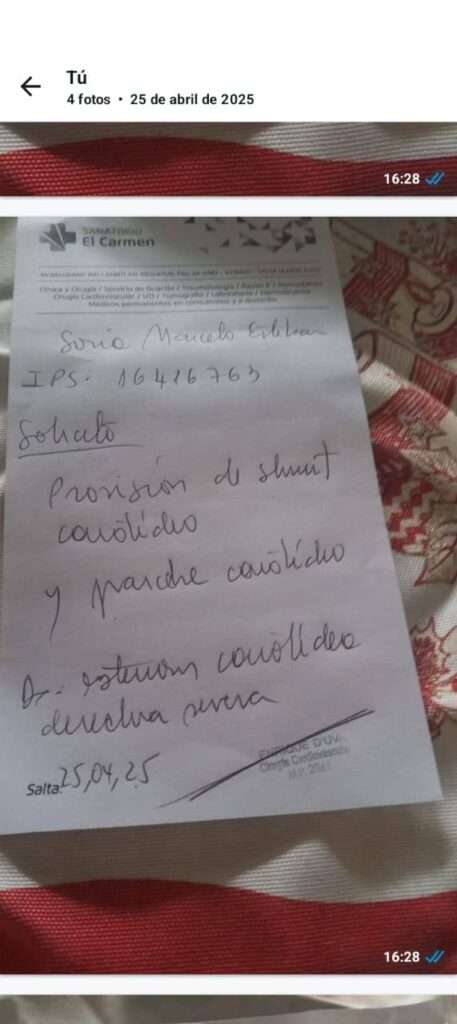 Tú
4 fotos • 25 de abril de 2025
16:28
SANATORIO
El Carmen
Clínica y Cirugía / Servicio de Guardia / Traumatología / Rayos X /
Cirugía Cardiovascular / UTI / Tomografía / Laboratorio / Hemodinamia
Médicos permanentes en consultorios y a domicilio
Soria Marcelo Esteban
IPS. 16416763
Solicito
Provisión de shunt
carotídeo
y parche carotídeo
Dx. estenosis carotídea
derecha severa
Salta: 25,04,25
ENRIQUE D'UVA
Cirugía Cardiovascular
16:28